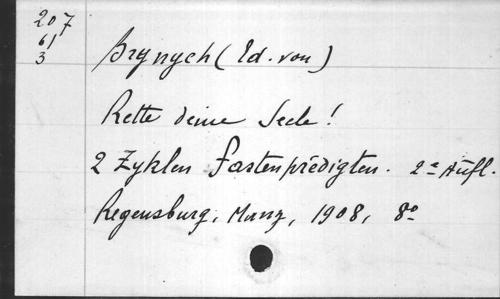 207
61
3
Brynych (Ed. von)
Rette deine Seele!
2 Zyklen Fastenpredigten. 2e Aufl.
Regensburg, Manz, 1908, 8o